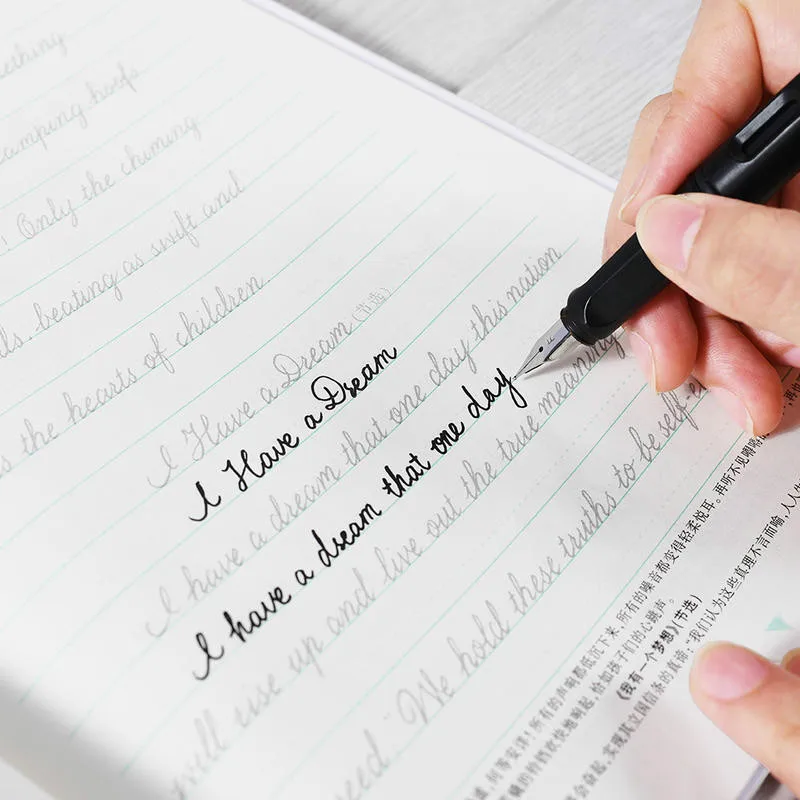 camping hoofs
Only the chiming
beating as swift and
the hearts of children.
I Have a Dream (节选)
I Have a Dream
I have a dream that one day this nation
I have a dream that one day
will rise up and live out the true meaning
We hold these truths to be self-e
何等安详!所有的声响都低沉下来,所有的噪音都变得轻柔悦耳。再听不见嘚嘚
的铃铛欢快地响起,恰如孩子们的心跳声。
《我有一个梦想》(节选)
会奋起,实现其立国信条的真谛:“我们认为这些真理不言而喻,人人